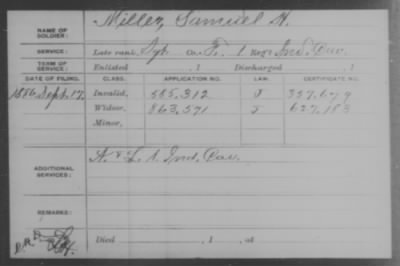 NAME OF SOLDIER: Miller, Samuel H.
SERVICE: Late rank, Sgt Co. F, 1 Reg't Ind. Cav.
TERM OF SERVICE: Enlisted , 1 Discharged , 1
DATE OF FILING. CLASS. APPLICATION NO. LAW. CERTIFICATE NO.
1886 Sept. 17, Invalid, 585,312 J 357,679
Widow, 863,571 J 627,183
Minor,
ADDITIONAL SERVICES: A & L 1 Ind. Cav.
REMARKS:
Died , 1 , at